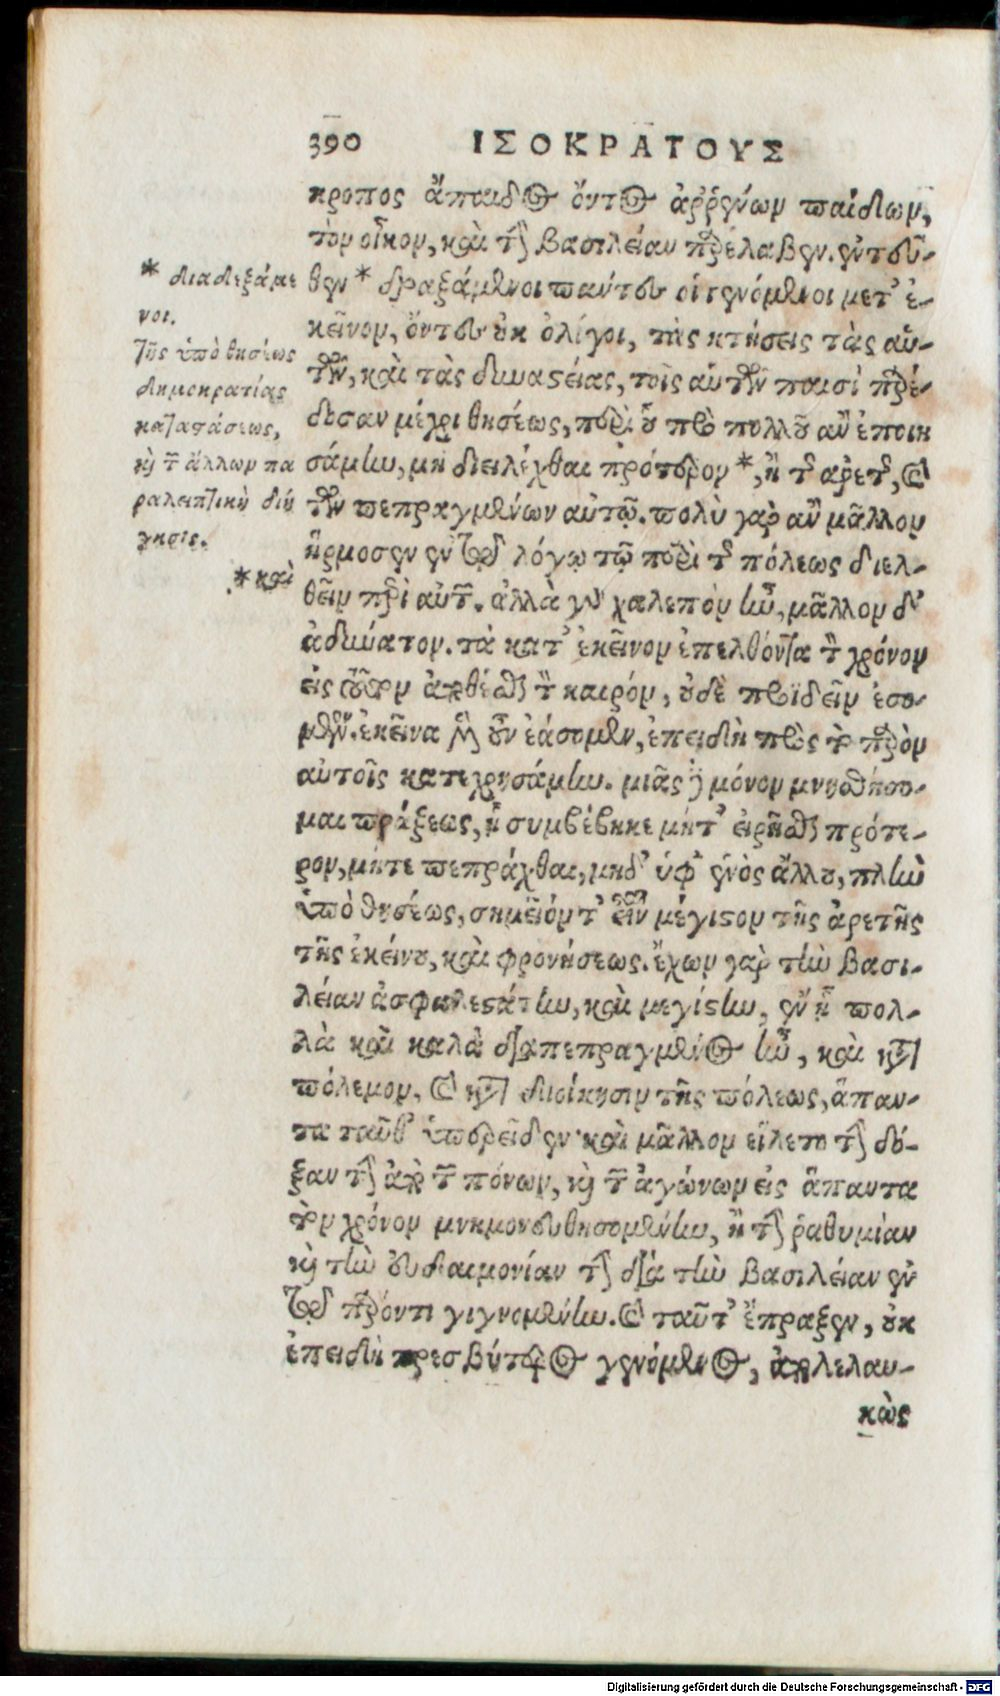 390 ΙΣΟΚΡΑΤΟΥΣ
κροπος ἄπαιδος ὄντος ἀῤῥένων παίδων,
τὸν οἶκον, καὶ τὴν βασιλείαν παρέλαβεν. ἐντεῦ-
θεν * δραξάμενοι πάντες οἱ γενόμενοι μετ' ἐ-
κεῖνον, ὄντες οὐκ ὀλίγοι, τὰς κτήσεις τὰς αὑ-
τῶν, καὶ τὰς δυναστείας, τοῖς αὑτῶν παισὶ παρέ-
δοσαν μέχρι θησέως, περὶ οὗ πρὸ πολλοῦ ἂν ἐποιη
σάμην, μὴ διειλέχθαι πρότερον *, ἢ τῆς ἀρετῆς, καὶ
τῶν πεπραγμένων αὐτῷ. πολὺ γὰρ ἂν μᾶλλον
ἥρμοσεν ἐν τῷ λόγῳ τῷ περὶ τῆς πόλεως διελ-
θεῖν περὶ αὐτῶν. ἀλλὰ γὰρ χαλεπὸν ἦν, μᾶλλον δ'
ἀδύνατον. τὰ κατ' ἐκεῖνον ἐπελθόντα τὸν χρόνον
εἰς τοῦτον ἀποθέσθαι τὸν καιρόν, ὃν οὐδὲ προϊδεῖν ἐσο-
μένον. ἐκεῖνα μὲν οὖν ἐάσομεν, ἐπειδὴ πρὸς τὸ παρὸν
αὐτοῖς κατεχρησάμην. μιᾶς δὲ μόνον μνησθήσο-
μαι πράξεως, ᾗ συμβέβηκε μήτ' εἰρῆσθαι πρότε-
ρον, μήτε πεπράχθαι, μηδ' ὑφ' ἑνὸς ἄλλου, πλὴν
ὑπὸ θησέως, σημεῖόν τ' εἶναι μέγιστον τῆς ἀρετῆς
τῆς ἐκείνου, καὶ φρονήσεως. ἔχων γὰρ τὴν βασι-
λείαν ἀσφαλεστάτην, καὶ μεγίστην, ἐν ᾗ πολ-
λὰ καὶ καλὰ διαπεπραγμένος ἦν, καὶ κατὰ
πόλεμον, καὶ κατὰ διοίκησιν τῆς πόλεως, ἅπαν-
τα ταῦθ' ὑπερεῖδεν· καὶ μᾶλλον εἵλετο τὴν δό-
ξαν τὴν ἀπὸ τῶν πόνων, καὶ τῶν ἀγώνων εἰς ἅπαντα
τὸν χρόνον μνημονευθησομένην, ἢ τὴν ῥαθυμίαν
καὶ τὴν εὐδαιμονίαν τὴν διὰ τὴν βασιλείαν ἐν
τῷ παρόντι γιγνομένην. καὶ ταῦτ' ἔπραξεν, οὐκ
ἐπειδὴ πρεσβύτερος γενόμενος, ἀπολελαυ-
κὼς
* διαδεξάμε
νοι.
τῆς ὑπὸ θησέως
δημοκρατίας
καταστάσεως,
καὶ τῶν ἄλλων πα
ραλειπτικὴ διή
γησις.
* καὶ
Digitalisierung gefördert durch die Deutsche Forschungsgemeinschaft - DFG